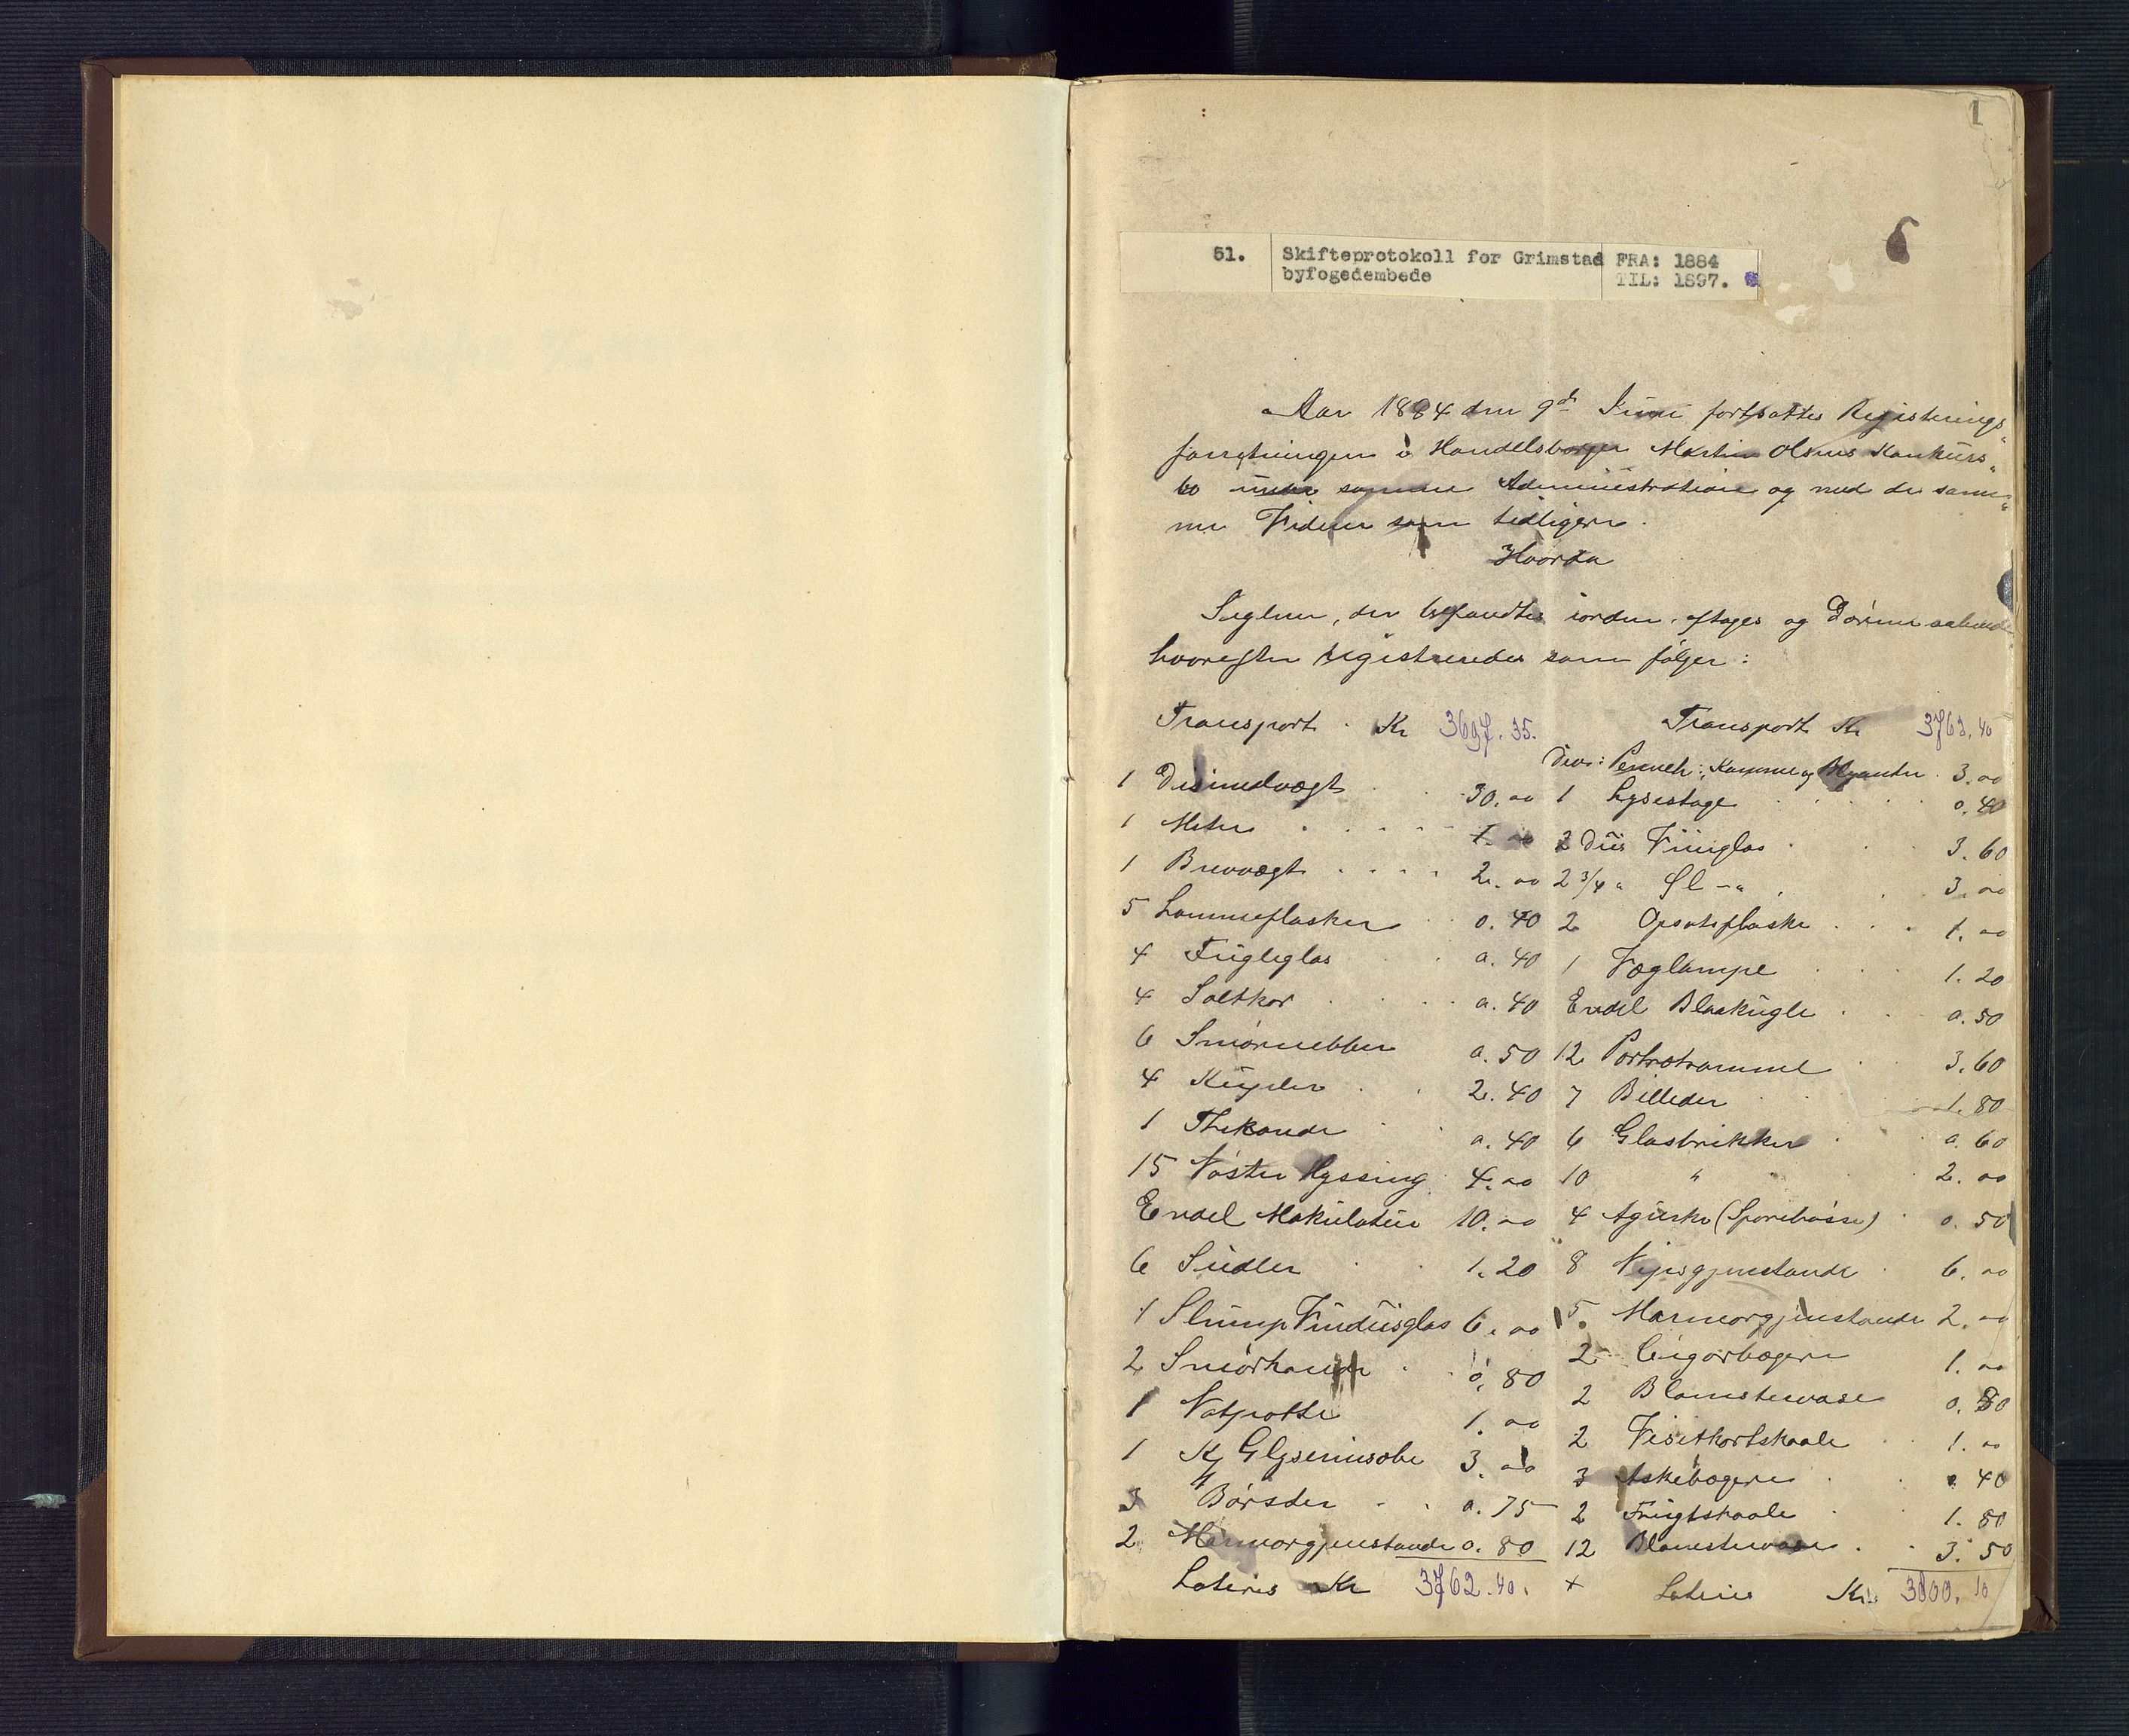 1
51. Skifteprotokoll for Grimstad FRA: 1884
byfogedembede TIL: 1897.
Aar 1884 den 9de Juni fortsattes Registerings
forretningen i Handelsborger Martin Olsens Konkurs
bo under samme Administration og med de sam
me Vidner som tidligere.
Hvorda
Seglene, der befandtes iorden, aftoges og Dørene aabnede
hvorefter registreredes som følger:
Transport. Kr 3697.35.
1 Desimalvægt 30.00
1 Meter 1.00
1 Brevvægt 2.00
5 Lommeflasker 0.40
4 Fugleglas 0.40
4 Saltkar 0.40
6 Smørnebber 0.50
4 Kupler 2.40
1 Thekande 0.40
15 Nøster Hyssing 4.00
Endel Makulatur 10.00
6 Sudler 1.20
1 Slump Vinduisglas 6.00
2 Smørkande 0.80
1 Natpotte 1.00
1 Kg Glyserinsæbe 3.00
3 Børster 0.75
2 Marmorgjenstande 0.80
Lateris Kr 3762.40.
Transport Kr 3762.40
Div: Penneh:, Kamme og Blyanter 3.00
1 Lysestage 0.40
2 Dus Viinglas 3.60
2 3/4 " Øl -" 3.00
2 Opsatsflaske 1.00
1 Væglampe 1.20
Endel Blaakugle 0.50
12 Portrætramme 3.60
7 Billeder 1.80
6 Glasbrikker 0.60
10 " 2.00
4 Agurke (Sparebøsse) 0.50
8 Nipsgjenstande 6.00
5 Marmorgjenstande 2.00
2 Cigarbægere 1.00
2 Blomstervase 0.80
2 Visitkortskaale 1.00
3 Askebægere 0.40
2 Frugtskaale 1.80
12 Blomstervase 3.50
+ Lateris Kr. 3800.10